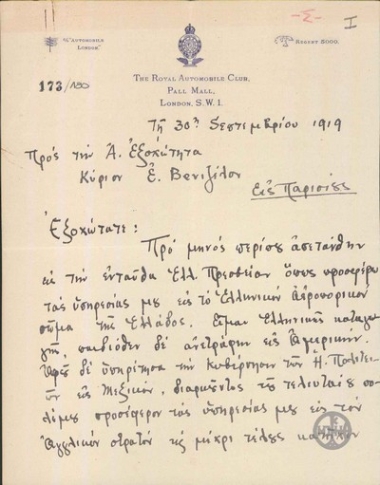 "AUTOMOBILE
LONDON."
REGENT 5000.
I
173/180
THE ROYAL AUTOMOBILE CLUB,
PALL MALL,
LONDON, S.W.1.
Τῇ 30ῃ Σεπτεμβρίου 1919
Πρὸς τὴν Α. Ἐξοχότητα
Κύριον Ε. Βενιζέλον
Εἰς Παρισίους
Ἐξοχώτατε:
Πρὸ μηνὸς περίπου ἀπετάνθην
εἰς τὴν ἐνταῦθα Ἑλλ. Πρεσβείαν ὅπως προσφέρω
τὰς ὑπηρεσίας μου εἰς τὸ Ἑλληνικὸν ἀεροπορικὸν
σῶμα τῆς Ἑλλάδος. Εἶμαι Ἑλληνικῆς καταγω
γῆς, παιδιόθεν δὲ ἀνετράφην εἰς Ἀμερικήν.
δὲ ὑπηρέτησα τὴν Κυβέρνησιν τῶν Η. Πολιτει
ῶν εἰς Μεξικόν, διαρκοῦντος τοῦ τελευταίου πο
λέμου προσέφερον τὰς ὑπηρεσίας μου εἰς τὸν
Ἀγγλικὸν στρατὸν ὡς μέχρι τέλους